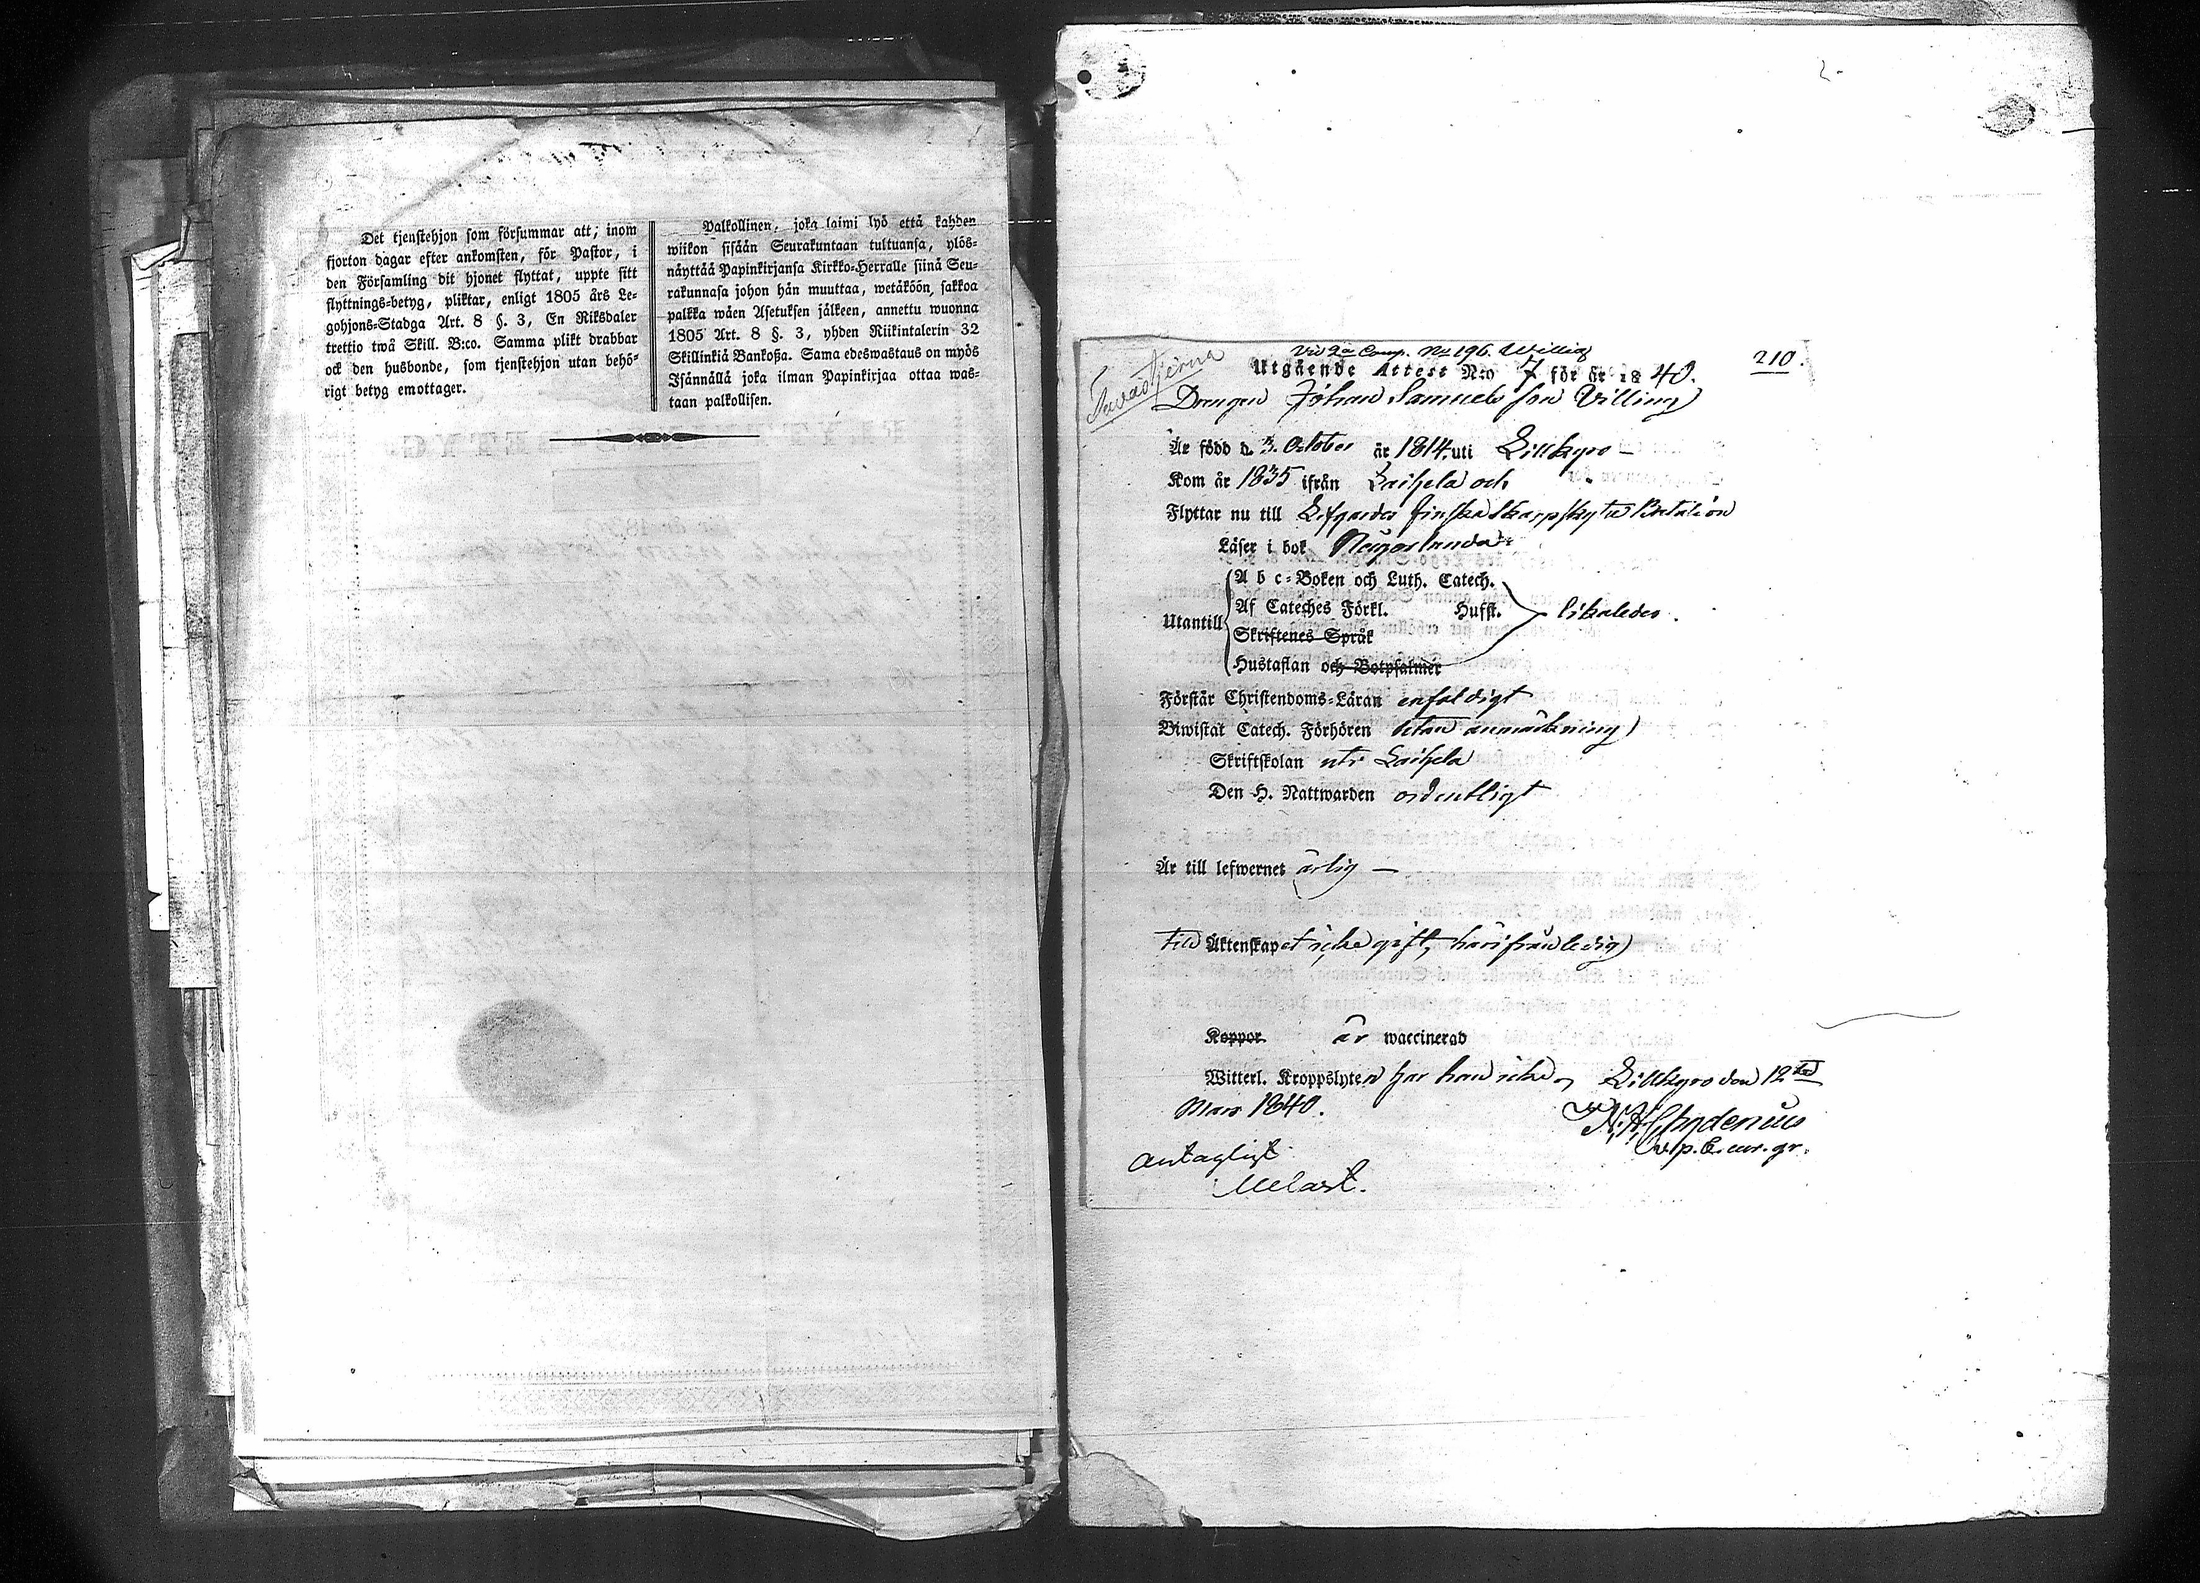 Det tjenstehjon som försummar att, inom
fjorton dagar efter ankomsten, för Pastor, i
den Församling dit hjonet flyttat, uppte sitt
flyttnings-betyg, pliktar, enligt 1805 års Le-
gohjons-Stadga Art. 8 §. 3, En Riksdaler
trettio twå Skill. B:co. Samma plikt drabbar
ock den husbonde, som tjenstehjon utan behö-
rigt betyg emottager.
Palkollinen, joka laimi lyö että kahden
wiikon sisään Seurakuntaan tultuansa, ylös-
näyttää Papinkirjansa Kirkko-Herralle siinä Seu-
rakunnasa johon hän muuttaa, wetäköön, sakkoa
palkka wäen Asetuksen jälkeen, annettu wuonna
1805 Art. 8 §. 3, yhden Riikintalerin 32
Skillinkiä Bankoßa. Sama edeswastaus on myös
Isännällä joka ilman Papinkirjaa ottaa was-
taan palkollisen.
210.
Tavastjerna
Vid 2a Comp. No 196. Willig
Utgående Attest N:o 7 för år 1840.
Drengen Johan Samuels son Villing
Är född d. 3. October år 1814. uti Lillkyro
Kom år 1835 ifrån Laihela och
Flyttar nu till Lifgardes finska Skarpskytte Bataillon
Läser i bok
Utantill
A b c-Boken och Luth. Catech.
Af Cateches Förkl. Hufst.
likaledes.
Skriftenes Språk
Hustaflan och Botpsalmer
Förstår Christendoms-Läran enfaldigt
Biwistat Catech. Förhören utan anmärkning
Skriftskolan uti Laihela
Den H. Nattwarden ordentligt
Är till lefwernet ärlig
Till Äktenskapet icke gift, härifrån ledig
Koppor är waccinerad
Witterl. Kroppslyten har han icke, Lillkyro den 12te
Mars 1840.
Chydenius
v. p.
Antagligt